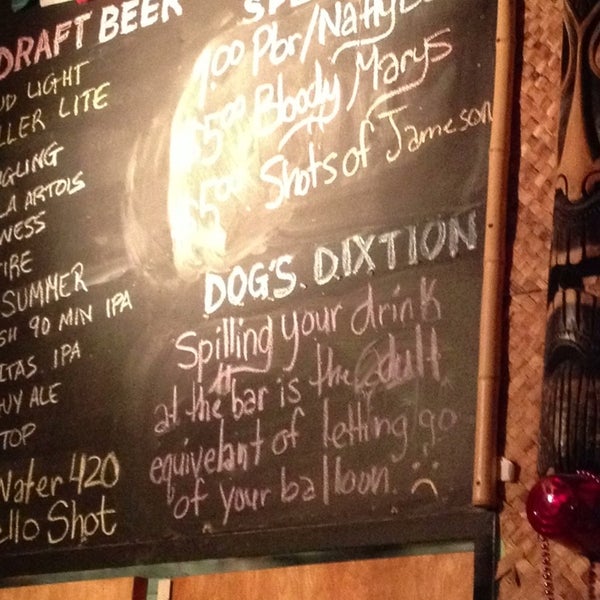 DRAFT BEER
UD LIGHT
LLER LITE
NGLING
LA ARTOIS
NESS
IRE
SUMMER
SH 90 MIN IPA
ITAS IPA
UY ALE
TOP
Water 420
ello Shot
SPE
1.00 Pbr/Natty
$5.00 Bloody Marys
$5.00 Shots of Jameson
DOG'S DIXTION
Spilling your drink
at the bar is the adult
equivelant of letting go
of your balloon. :(